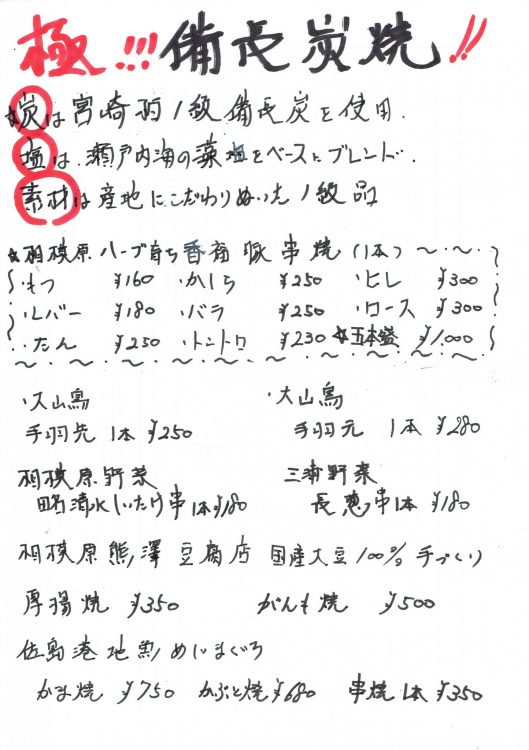 極!!!備長炭焼!!
☆炭は宮崎羽1級備長炭を使用.
塩は.瀬戸内海の藻塩をベースにブレンド.
素材は産地にこだわりぬいた1級品
☆相模原ハーブ育ち香福豚串焼(1本)
・もつ ¥160 ・かしら ¥250 ・ヒレ ¥300
・レバー ¥180 ・バラ ¥250 ・ロース ¥300
・たん ¥250 ・トントロ ¥230 ☆五本盛 ¥1,000
・大山鳥 ・大山鳥
手羽先 1本 ¥250 手羽元 1本 ¥280
相模原野菜 三浦野菜
清水しいたけ串1本¥180 長葱串1本 ¥180
相模原熊澤豆腐店 国産大豆100%手づくり
厚揚焼 ¥350 がんも焼 ¥500
佐島港地魚めじまぐろ
かま焼 ¥750 かぶと焼¥680 串焼1本¥350